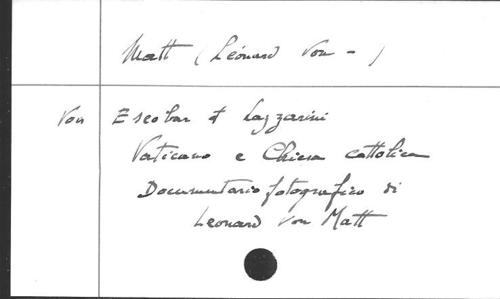 Matt (Léonard Von - )
Von Escobar & Lazzarini
Vaticano e Chiesa cattolica
Documentario fotografico di
Leonard Von Matt